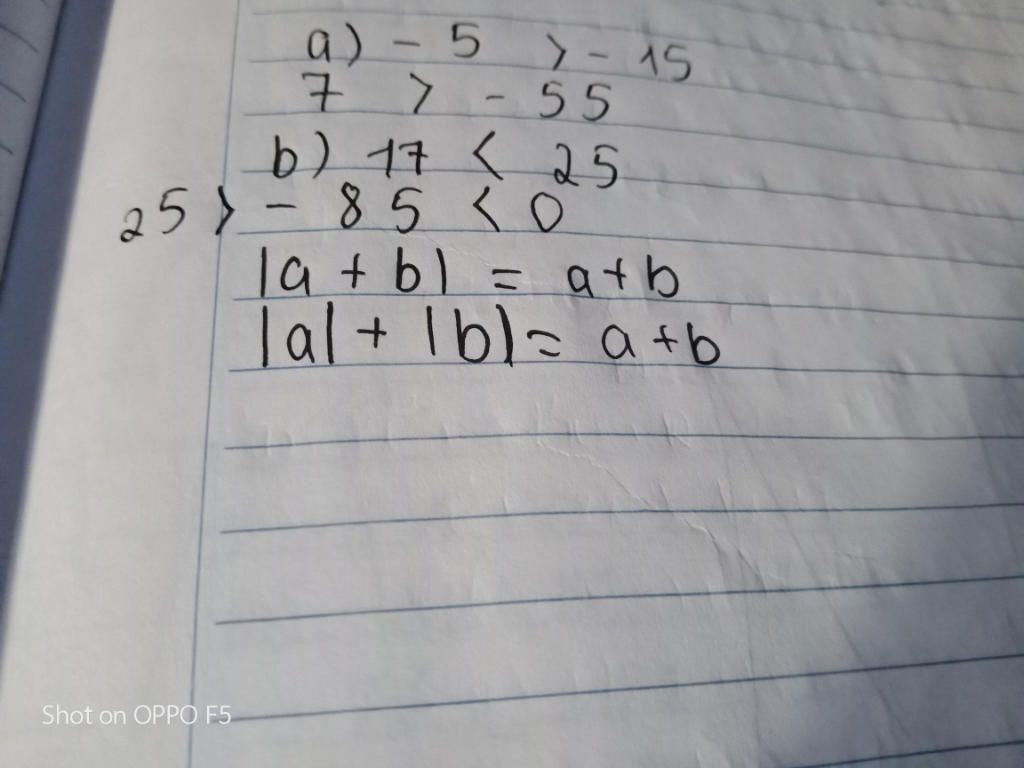 a) - 5 > - 15
7 > - 55
b) 17 < 25
25 > - 85 < 0
|a + b| = a+b
|a| + |b| = a+b
Shot on OPPO F5